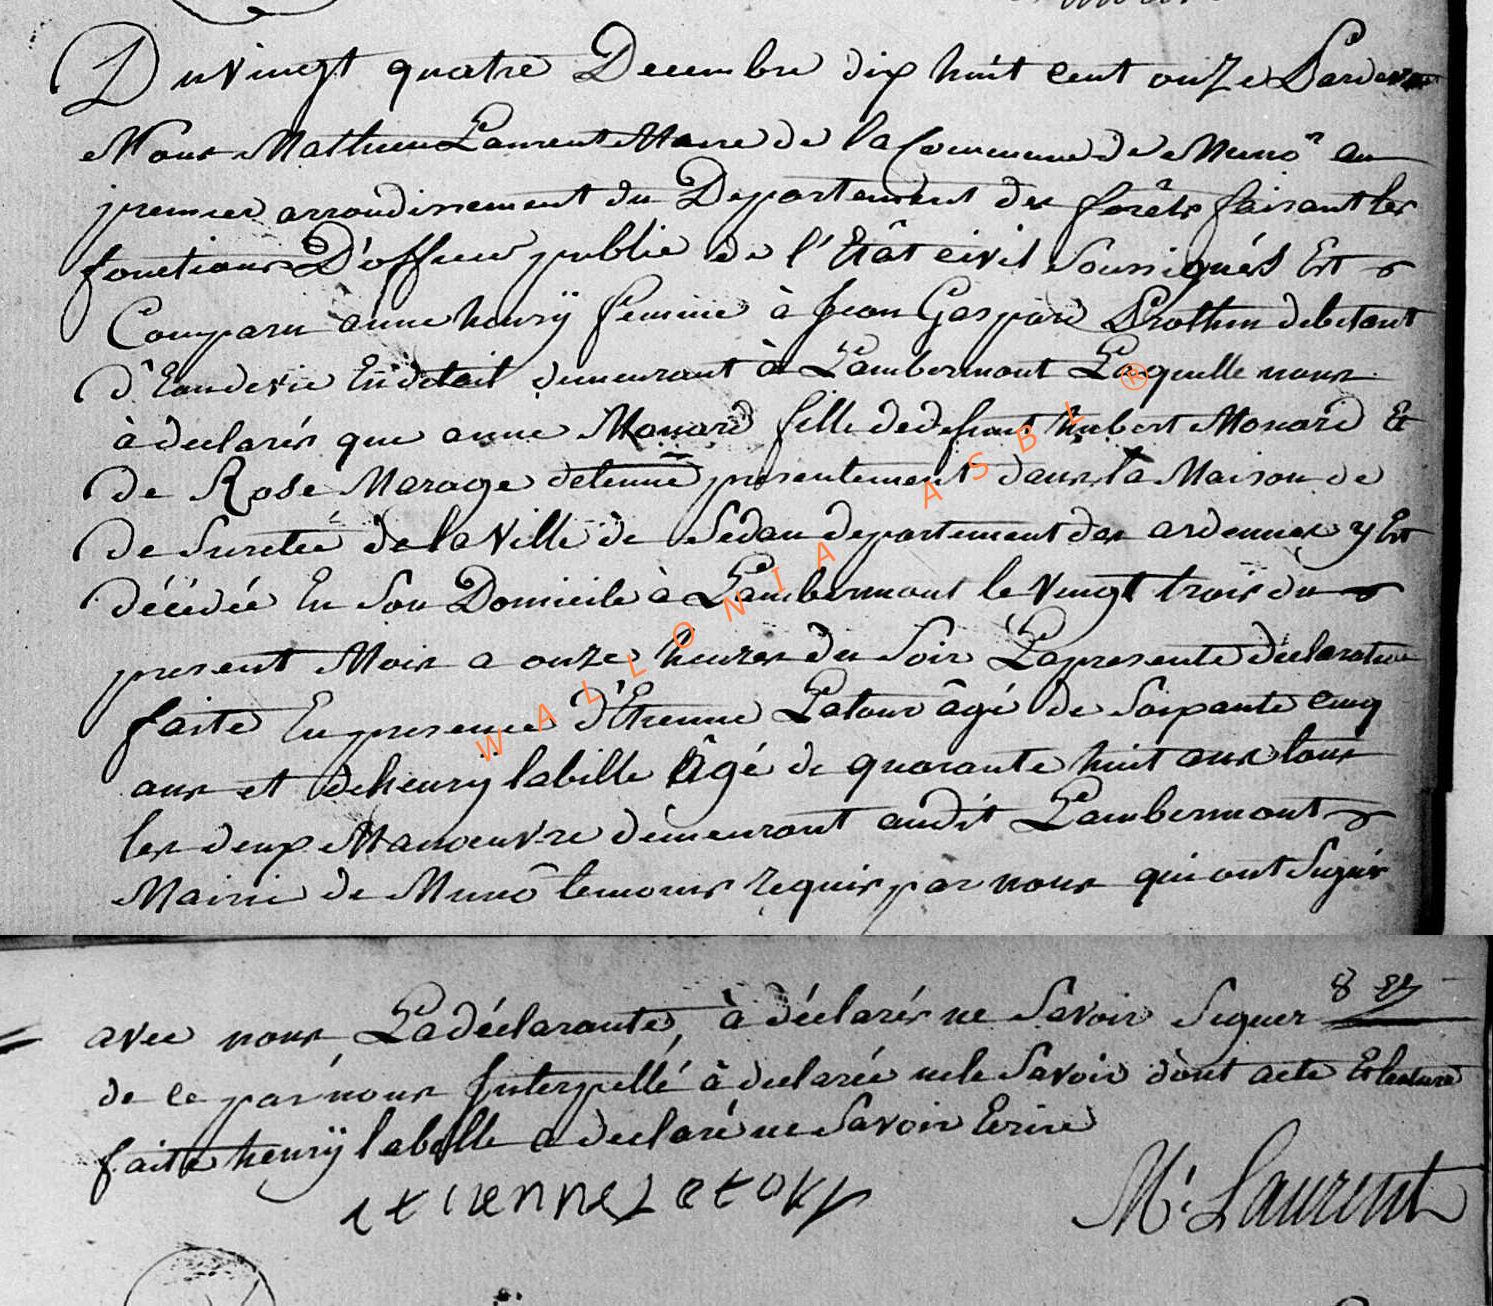 Du vingt quatre Decembre dix huit cent onze Pardevan
Nous Mathieu Laurent Maire de la Commune de Muno au
premier arrondissement du Departement des forêts faisant les
fonctions D'officier public de l'Etât civil Soussignés Est
Comparu anne henrÿ femme à Jean Gaspard Prothin debitant
d'Eaudevie En detail demeurant à Lambermont Laquelle nous
à declarés que anne Monard fille de defunt hubert Monard Et
de Rose Marage detenue presentement dans la Maison de
de Suretée de la Ville de Sedan departement des ardennes y Est
décédée En Son Domicile à Lambermont le Vingt trois du
present Mois a onze heures du Soir La presente déclaration
faite En presence d'Etienne Latour âgé de Soixante cinq
ans et de henry labille âgé de quarante huit ans tous
les deux Manoeuvre demeurant audit Lambermont
Mairie de Muno temoins requis par nous qui ont Signés
avec nous La déclarante, à déclarés ne Savoir Signer
de ce par nous Interpellé à declarée ne le Savoir dont acte Et lecture
faite henrÿ labille a declaré ne Savoir Ecrire
etienne Latour
M. Laurent
WALLONIA ASBL ®